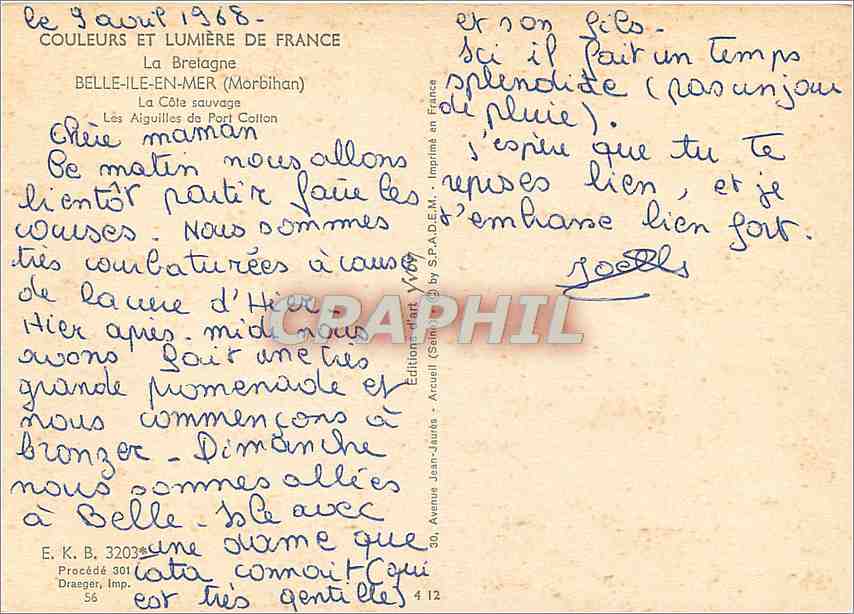 le 9 avril 1968-
COULEURS ET LUMIÈRE DE FRANCE
La Bretagne
BELLE-ILE-EN-MER (Morbihan)
La Côte sauvage
Les Aiguilles de Port Cotton
Chère maman
Ce matin nous allons
bientôt partir faire les
courses. Nous sommes
très courbaturées à cause
de la d'Hier.
Hier après-midi nous
avons fait une très
grande promenade et
nous commençons à
bronzer - Dimanche
nous sommes allées
à Belle-Isle avec
une dame que
tata connait (qui
est très gentille)
E. K. B. 3203*
Procédé 301
Draeger, Imp.
56
4 12
Editions d'art YVON
30, Avenue Jean-Jaurès - Arcueil (Seine) © by S.P.A.D.E.M. - Imprimé en France
CRAPHIL
et son fils-
Ici il fait un temps
splendide (pas un jour
de pluie).
J'espère que tu te
reposes bien, et je
t'embrasse bien fort.
Joëlle